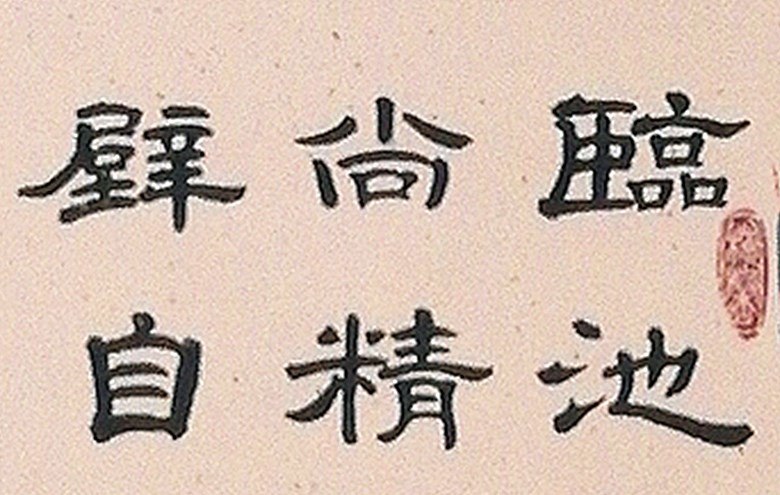 臨池
尚精
壁自